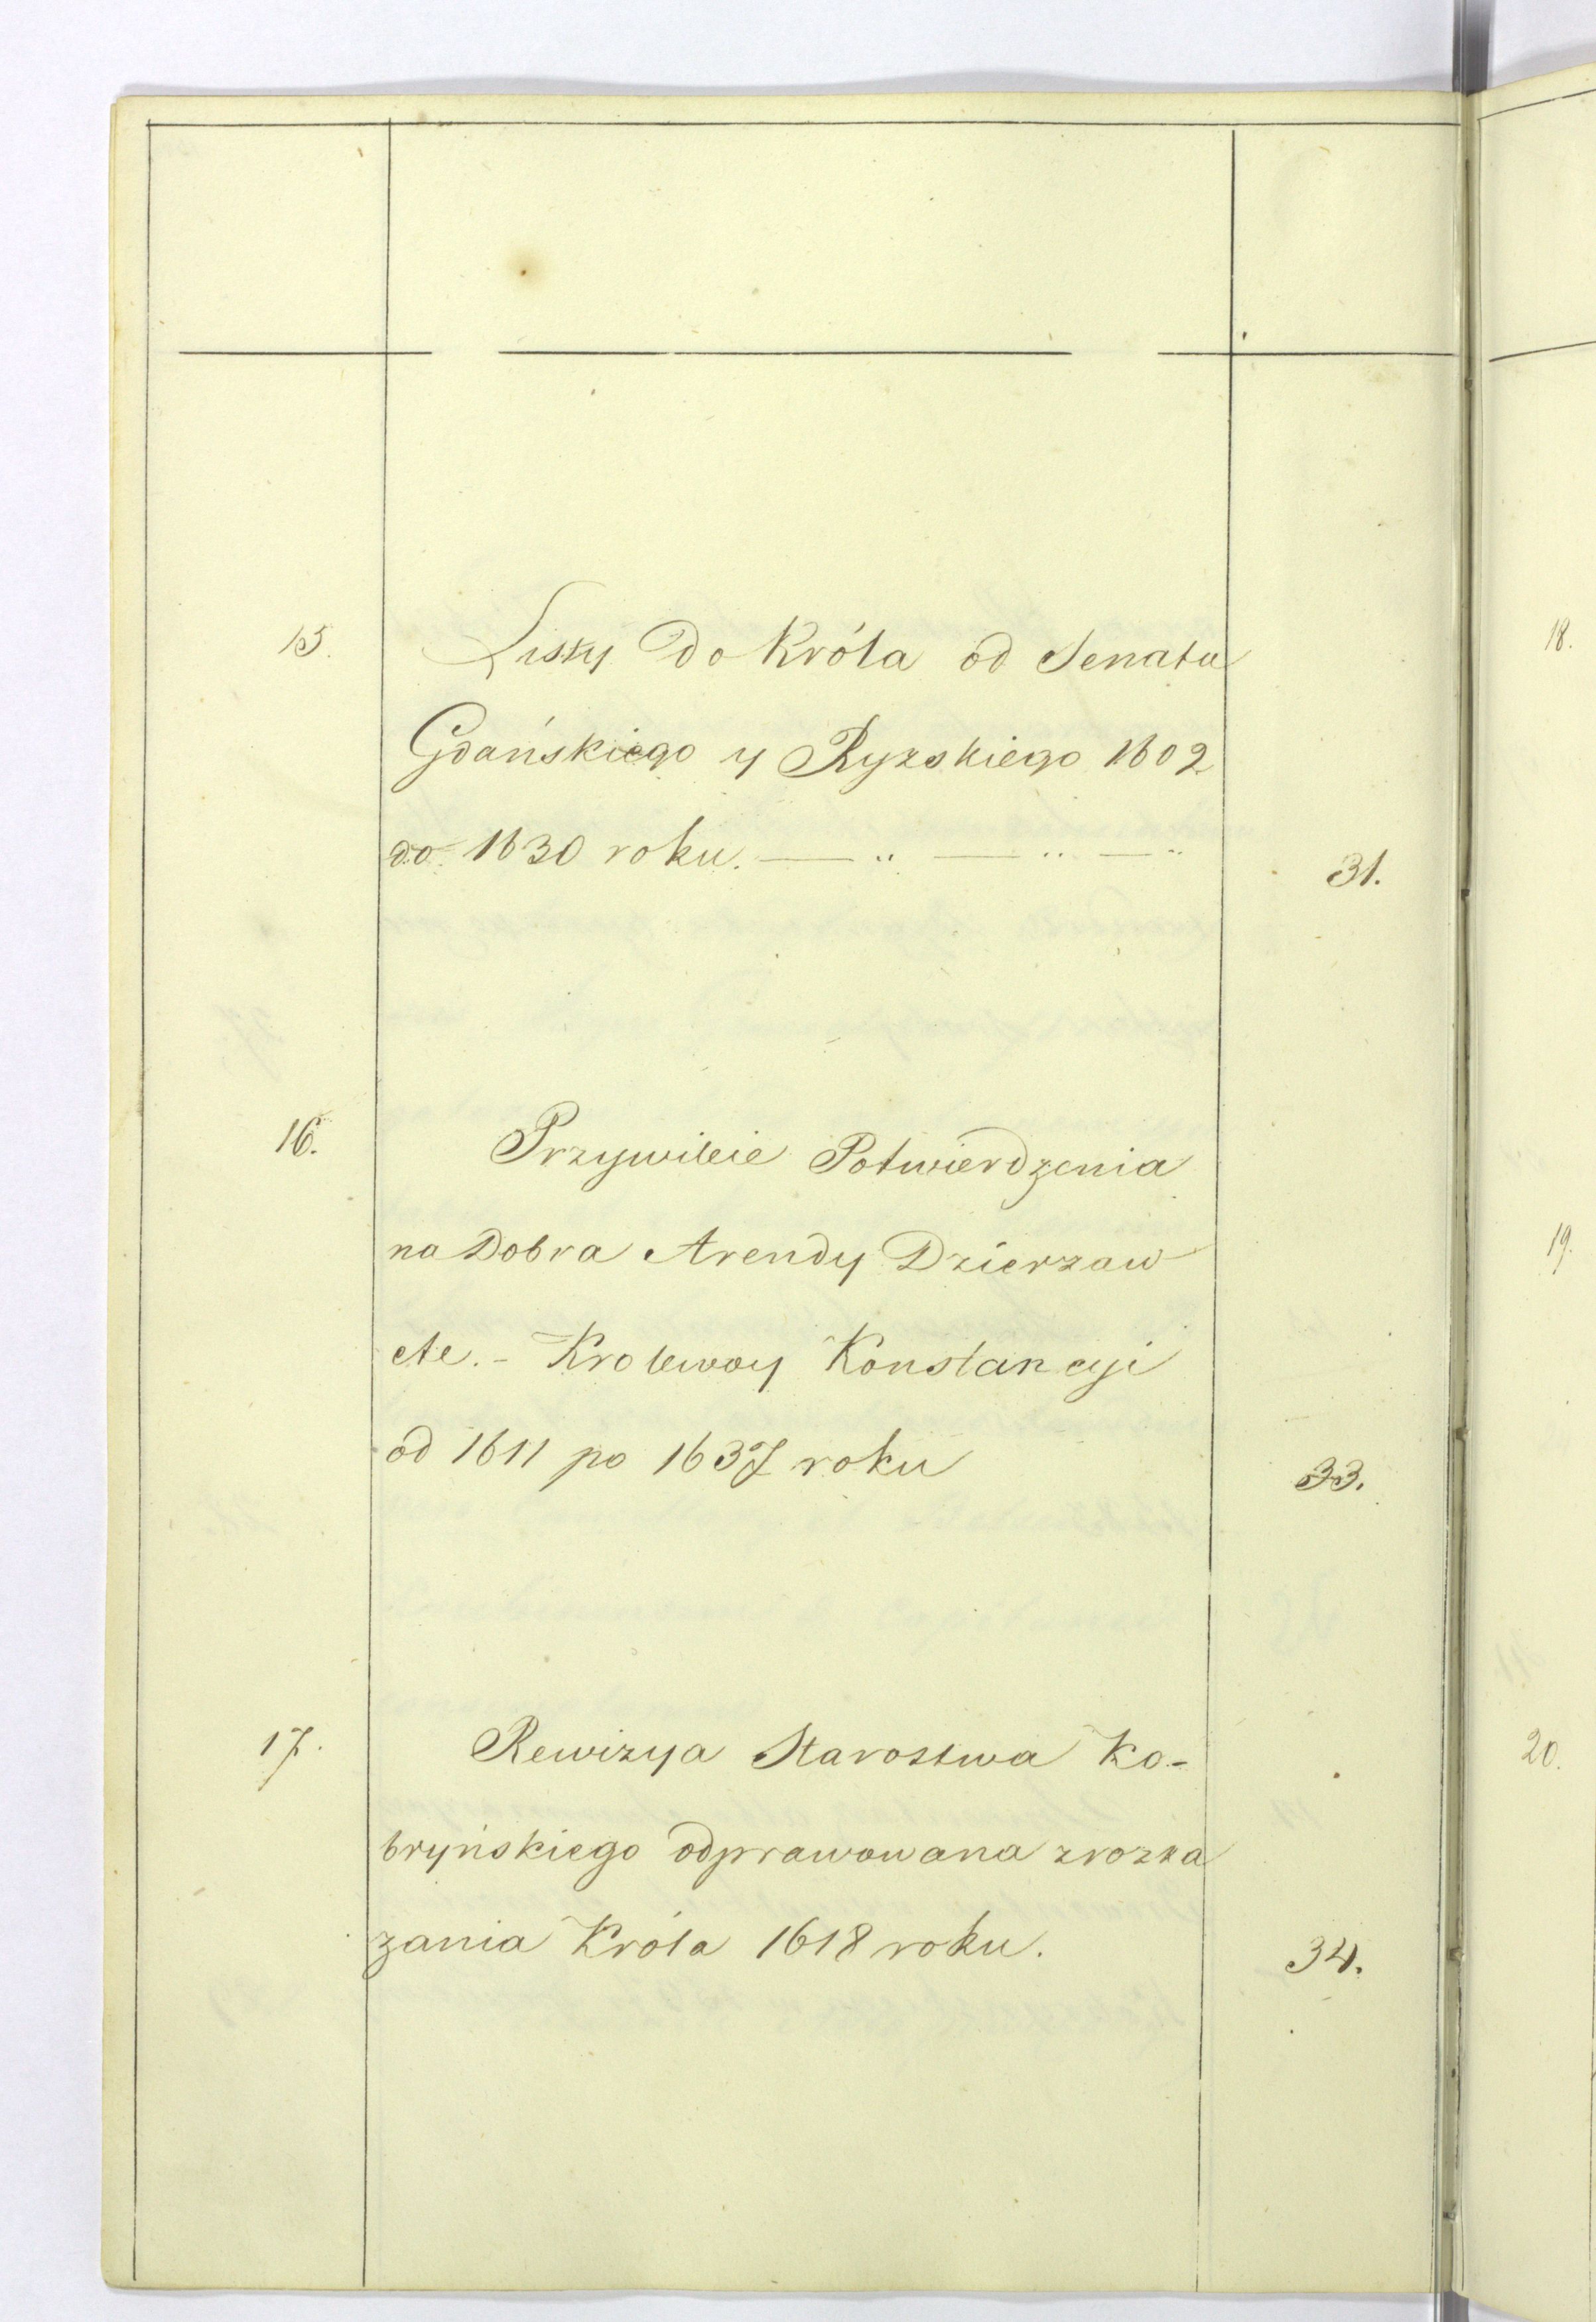 15. Listy Do Króla od Senatu
Gdańskiego y Ryzskiego 1602
do 1630 roku. — „ — „ — „
31.
16. Przywileie Potwierdzenia
na Dobra Arendy Dzierzaw
etc. - Krolewoy Konstancyi
od 1611 po 1637 roku
33.
17. Rewizya Starostwa Ko-
bryńskiego odprawowana zrozka
zania Króla 1618 roku.
34.
18.
19.
20.